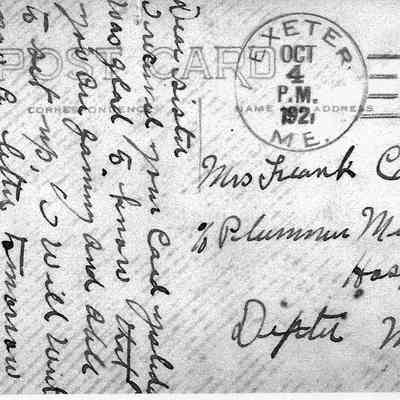 POST CARD
CORRESPONDENCE
NAME ADDRESS
EXETER
OCT
4
P.M.
1921
ME.
Dear Sister
I received your Card yesterday
was glad to know that
you are gaining and able
to set up, I will write
you a letter tomorrow
Mrs Frank
c/o Plummer M
Hos
Dexter M